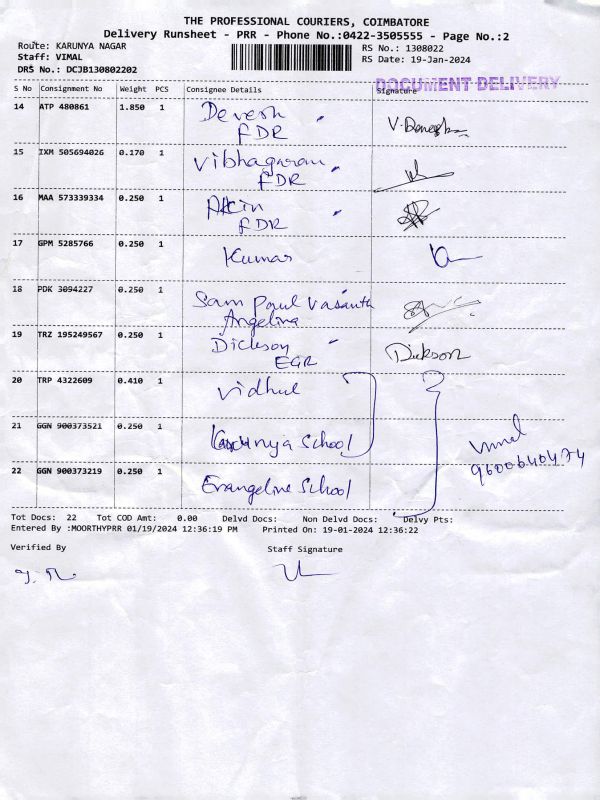 THE PROFESSIONAL COURIERS, COIMBATORE
Delivery Runsheet - PRR - Phone No.:0422-3505555 - Page No.:2
Route: KARUNYA NAGAR RS No.: 1308022
Staff: VIMAL RS Date: 19-Jan-2024
DRS No.: DCJB130802202
DOCUMENT DELIVERY
S No Consignment No Weight PCS Consignee Details Signature
14 ATP 480861 1.850 1 Devesh "
FDR
15 IXM 505694026 0.170 1 "
FDR
16 MAA 573339334 0.250 1 "
FDR
17 GPM 5285766 0.250 1 Kumar
18 PDK 3094227 0.250 1 Sam Paul Vasanth
Angelina
19 TRZ 195249567 0.250 1 Dickson " Dickson
EGR
20 TRP 4322609 0.410 1 Vidhul
21 GGN 900373521 0.250 1 Karunya School
Vimal
9600640474
22 GGN 900373219 0.250 1 Evangeline School
Tot Docs: 22 Tot COD Amt: 0.00 Delvd Docs: Non Delvd Docs: Delvy Pts:
Entered By :MOORTHYPRR 01/19/2024 12:36:19 PM Printed On: 19-01-2024 12:36:22
Verified By Staff Signature